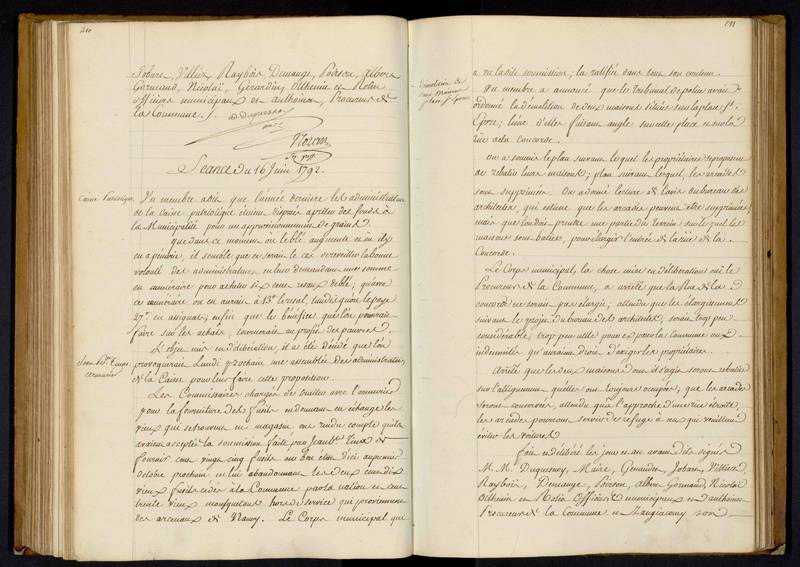 210
Jobart, Villiez, Raybois, Demange, Poirson, Albert
Gormand, Nicolaï, Gerardin, Othenin et Rolin
officiers municipaux et authoine, Procureur de
la Commune ./.
Duquesnoy
maire
Nozan
Séance du 16 Juin 1792.
Caisse Patriotique
Un membre a dit que l'année derniere les administrateurs
de la Caisse patriotique étaient disposés à prêter des fonds à
la Municipalité pour un approvisionnement de grains.
que dans ce moment où le blé augmente et où il y
en a pénurie, il semble que ce serait le cas de reveiller la bonne
volonté des administrateurs en leur demandant une somme
en numéraire pour acheter six cens resaux de blé; qu'avec
ce numéraire on en aurait à 13tt le resal, tandis qu'on le paye
27tt en assignats; enfin que le bénéfice que l'on pourrait
faire sur les achats, tournerait au profit des pauvres.
L'objet mis en délibération, il a été décidé que l'on
provoquerait Lundi prochain une assemblée des administrateurs
de la Caisse pour leur faire cette proposition.
armurier
Les Commissaires chargés de traiter avec l'armurier
pour la fourniture de fusils en donnant en échange les
vieux qui se trouvent en magasin ont rendu compte qu'ils
avaient accepté la soumission faite par Jean Bte. de
fournir cent vingt cinq fusils en bon état d'ici au premier
octobre prochain en lui abandonnant les deux cens dix
vieux fusils cédés à la Commune par la nation et cent
trente vieux mousquetons hors de service qui proviennent
des arcenaux de Nancy. Le Corps municipal qui
211
a vu la dite soumission; la ratifiée dans tout son contenu.
Démolition de
deux maisons
place St. Epvre
Un membre a annoncé que le tribunal de police avait
ordonné la démolition de deux maisons situées sur la place St.
Epvre; l'une d'elles faisant angle sur cette place et sur la
rue de la Concorde.
On a soumis le plan suivant lequel les propriétaires se proposent
de rebatir leurs maisons; plan suivant lequel, les arcades
sont supprimées. On a donné lecture de l'avis du bureau des
architectes, qui estime que les arcades peuvent être supprimées;
mais que l'on doit prendre une partie du terrein sur lequel les
maisons sont baties, pour élargir l'entrée de la rüe de la
Concorde.
Le Corps municipal, la chose mise en délibération ouï le
Procureur de la Commune, a arrêté que la Rue de la
concorde ne serait pas élargie; attendu que les élargissemens
suivant le projet du bureau des architectes, serait trop peu
considérable, trop peu utile pour exposer la Commune aux
indemnités qu'auraient droit d'exiger les propriétaires.
Arrête que les deux maisons dont il s'agit seront rebaties
sur l'allignement qu'elles ont toujours occupées, que les arcades
seront conservées, attendu que l'approche d'une rüe étroite,
les arcades pourront servir de refuge à ceux qui veuillent
éviter les voitures.
Fait et délibéré les jours et an avant dits signés
M. M. Duquesnoy, Maire, Genaudet, Jobart, Villiez
Raybois, Demange, Poirson, Albert Gormand, Nicolaï
Othenin et Rolin Officiers municipaux et authoine
Procureur de la Commune et Mangeacomy son